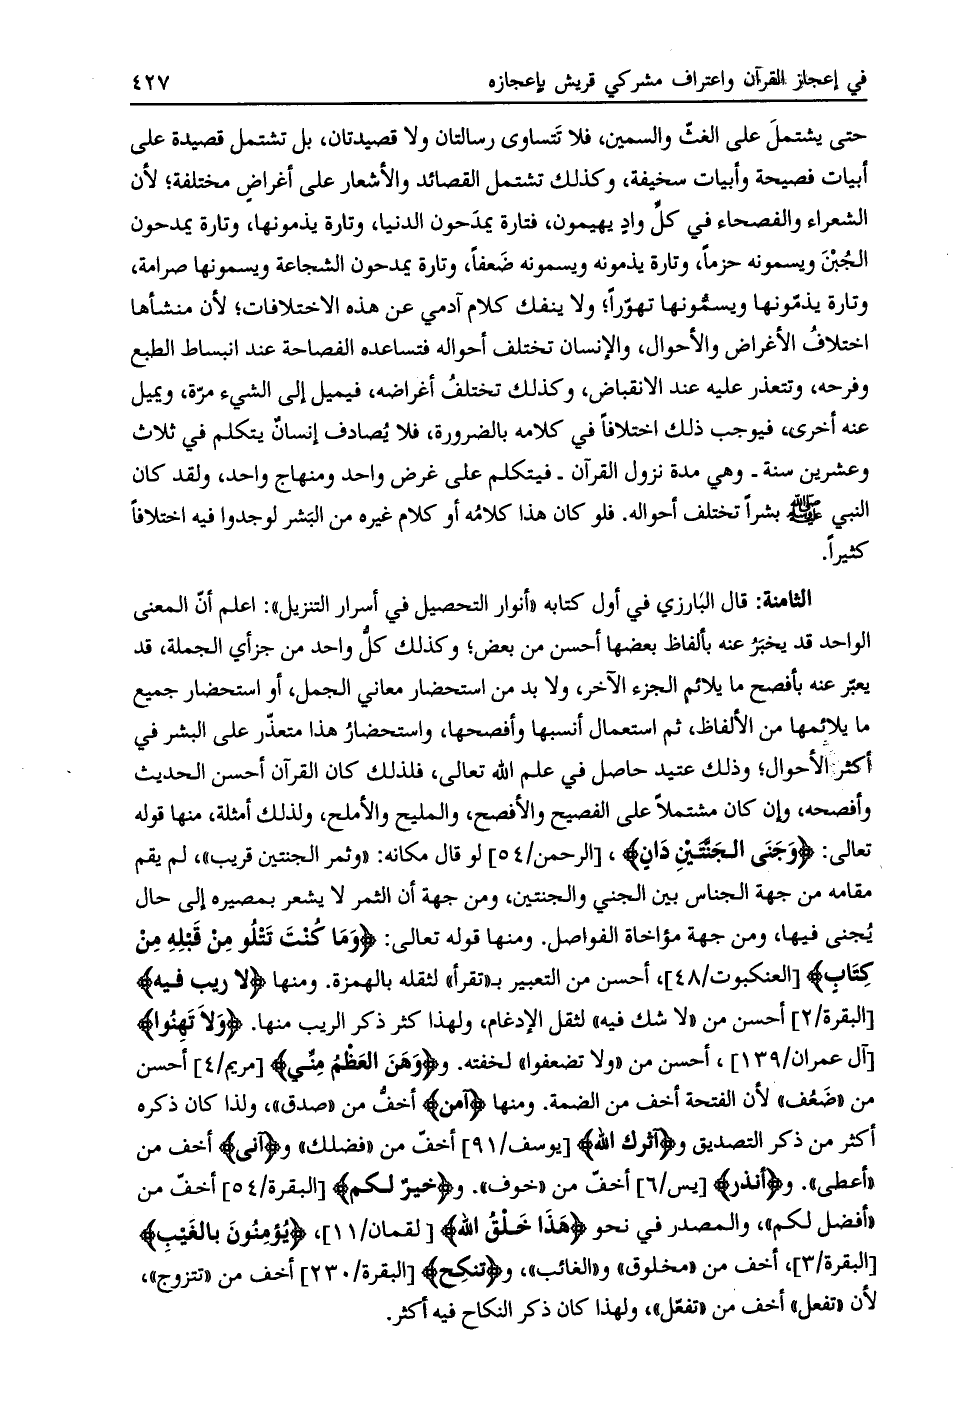 في إعجاز القرآن واعتراف مشركي قريش بإعجازه ٤٢٧
حتى يشتملَ على الغثّ والسمين، فلا تَتساوى رسالتان ولا قصيدتان، بل تشتمل قصيدة على
أبيات فصيحة وأبيات سخيفة، وكذلك تشتمل القصائد والأشعار على أغراضٍ مختلفة؛ لأن
الشعراء والفصحاء في كلِّ وادٍ يهيمون، فتارة يمدَحون الدنيا، وتارة يذمونها، وتارة يمدحون
الجُبْنَ ويسمونه حزماً، وتارة يذمونه ويسمونه ضَعفاً، وتارة يمدحون الشجاعة ويسمونها صرامة،
وتارة يذمّونها ويسمُّونها تهوّراً؛ ولا ينفك كلام آدمي عن هذه الاختلافات؛ لأن منشأها
اختلافُ الأغراض والأحوال، والإنسان تختلف أحواله فتساعده الفصاحة عند انبساط الطبع
وفرحه، وتتعذر عليه عند الانقباض، وكذلك تختلفُ أغراضه، فيميل إلى الشيء مرّة، ويميل
عنه أخرى، فيوجب ذلك اختلافاً في كلامه بالضرورة، فلا يُصادف إنسانٌ يتكلم في ثلاث
وعشرين سنة ـ وهي مدة نزول القرآن ـ فيتكلم على غرض واحد ومنهاج واحد، ولقد كان
النبي ﷺ بشراً تختلف أحواله. فلو كان هذا كلامُه أو كلام غيره من البَشر لوجدوا فيه اختلافاً
كثيراً.
الثامنة: قال البَارزي في أول كتابه «أنوار التحصيل في أسرار التنزيل»: اعلم أنّ المعنى
الواحد قد يخبَرُ عنه بألفاظ بعضها أحسن من بعض؛ وكذلك كلُّ واحد من جزأي الجملة، قد
يعبّر عنه بأفصح ما يلائم الجزء الآخر، ولا بد من استحضار معاني الجمل، أو استحضار جميع
ما يلائمها من الألفاظ، ثم استعمال أنسبها وأفصحها، واستحضارُ هذا متعذّر على البشر في
أكثر الأحوال؛ وذلك عتيد حاصل في علم الله تعالى، فلذلك كان القرآن أحسن الحديث
وأفصحه، وإن كان مشتملاً على الفصيح والأفصح، والمليح والأملح، ولذلك أمثلة، منها قوله
تعالى: ﴿وَجَنَى الجَنَّتَيْنِ دَانٍ﴾ ، [الرحمن/٥٤] لو قال مكانه: «وثمر الجنتين قريب»، لم يقم
مقامه من جهة الجناس بين الجني والجنتين، ومن جهة أن الثمر لا يشعر بمصيره إلى حال
يُجنى فيها، ومن جهة مؤاخاة الفواصل. ومنها قوله تعالى: ﴿وَمَا كُنْتَ تَتْلُو مِنْ قَبْلِهِ مِنْ
كِتَابٍ﴾ [العنكبوت/٤٨]، أحسن من التعبير بـ«تقرأ» لثقله بالهمزة. ومنها ﴿لا ريب فيه﴾
[البقرة/٢] أحسن من «لا شك فيه» لثقل الإدغام، ولهذا كثر ذكر الريب منها. ﴿وَلاَ تَهِنُوا﴾
[آل عمران/١٣٩] ، أحسن من «ولا تضعفوا» لخفته. و﴿وَهَنَ العَظْمُ مِنِّي﴾ [مريم/٤] أحسن
من «ضَعُف» لأن الفتحة أخف من الضمة. ومنها ﴿آمن﴾ أخفُّ من «صدق»، ولذا كان ذكره
أكثر من ذكر التصديق و﴿آثرك الله﴾ [يوسف/٩١] أخفّ من «فضلك» و﴿آتى﴾ أخف من
«أعطى». و﴿أنذر﴾ [يس/٦] أخفّ من «خوف». و﴿خيرٌ لكم﴾ [البقرة/٥٤] أخفّ من
«أفضل لكم»، والمصدر في نحو ﴿هَذَا خَلْقُ الله﴾ [لقمان/١١]، ﴿يُؤمِنُونَ بالغَيْبِ﴾
[البقرة/٣]، أخف من «مخلوق» و«الغائب»، و﴿تنكِح﴾ [البقرة/٢٣٠] أخف من «تتزوج»،
لأن «تفعل» أخف من «تفعّل»، ولهذا كان ذكر النكاح فيه أكثر.